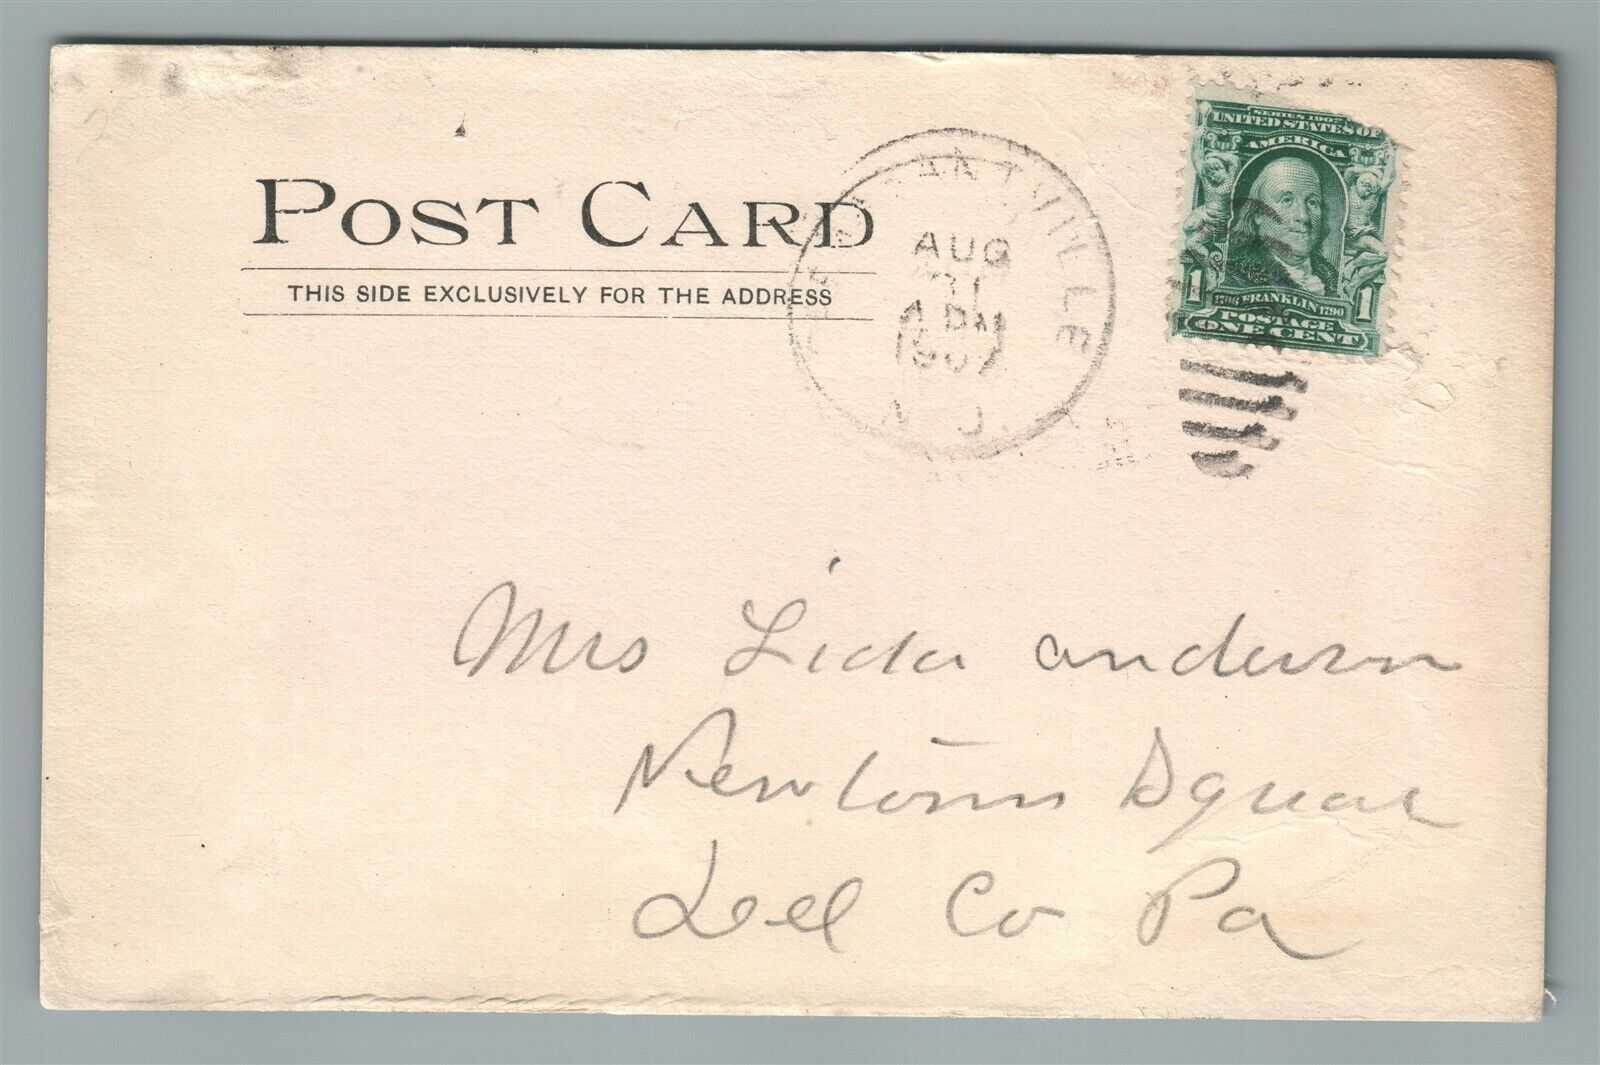 POST CARD
THIS SIDE EXCLUSIVELY FOR THE ADDRESS
AUG
1907
N.J.
SERIES 1902
UNITED STATES OF
AMERICA
1 1
1706 FRANKLIN 1790
POSTAGE
ONE CENT
Mrs Lida anderson
Newtown Square
Del Co Pa